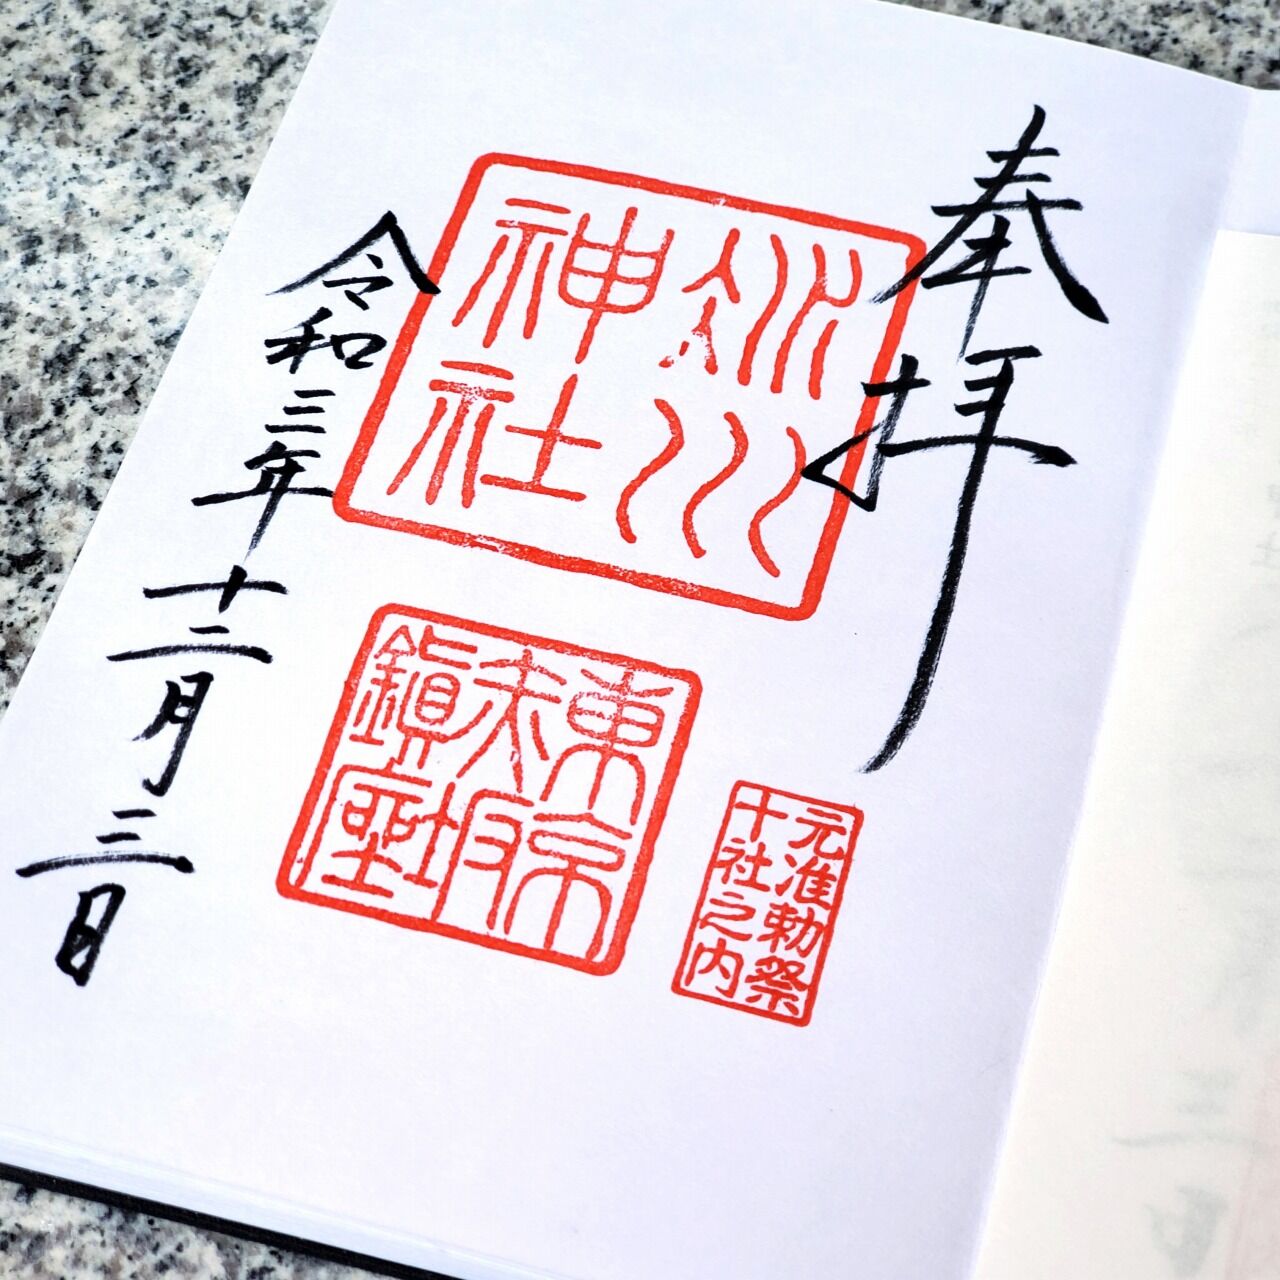 奉拝
冰川
神社
東京
赤坂
鎭座
元准勅祭
十社之内
令和三年十二月三日